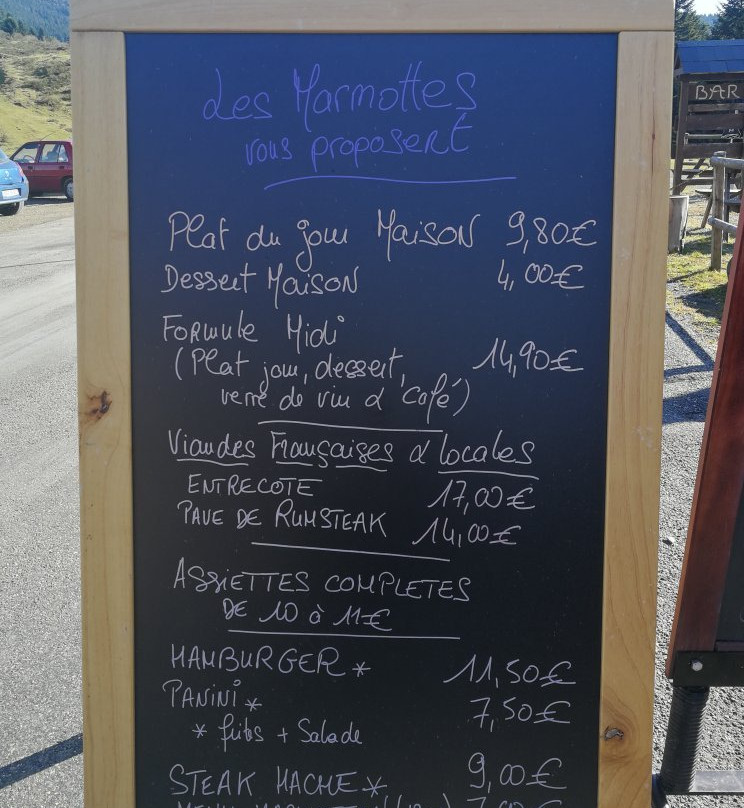 Les Marmottes
vous proposent
Plat du jour Maison 9,80€
Dessert Maison 4,00€
Formule Midi
(Plat jour, dessert, 14,90€
verre de vin & café)
Viandes Françaises & locales
ENTRECOTE 17,00€
PAVE DE RUMSTEAK 14,00€
ASSIETTES COMPLETES
DE 10 à 11€
HAMBURGER * 11,50€
PANINI * 7,50€
* frites + Salade
STEAK HACHE * 9,00€
BAR